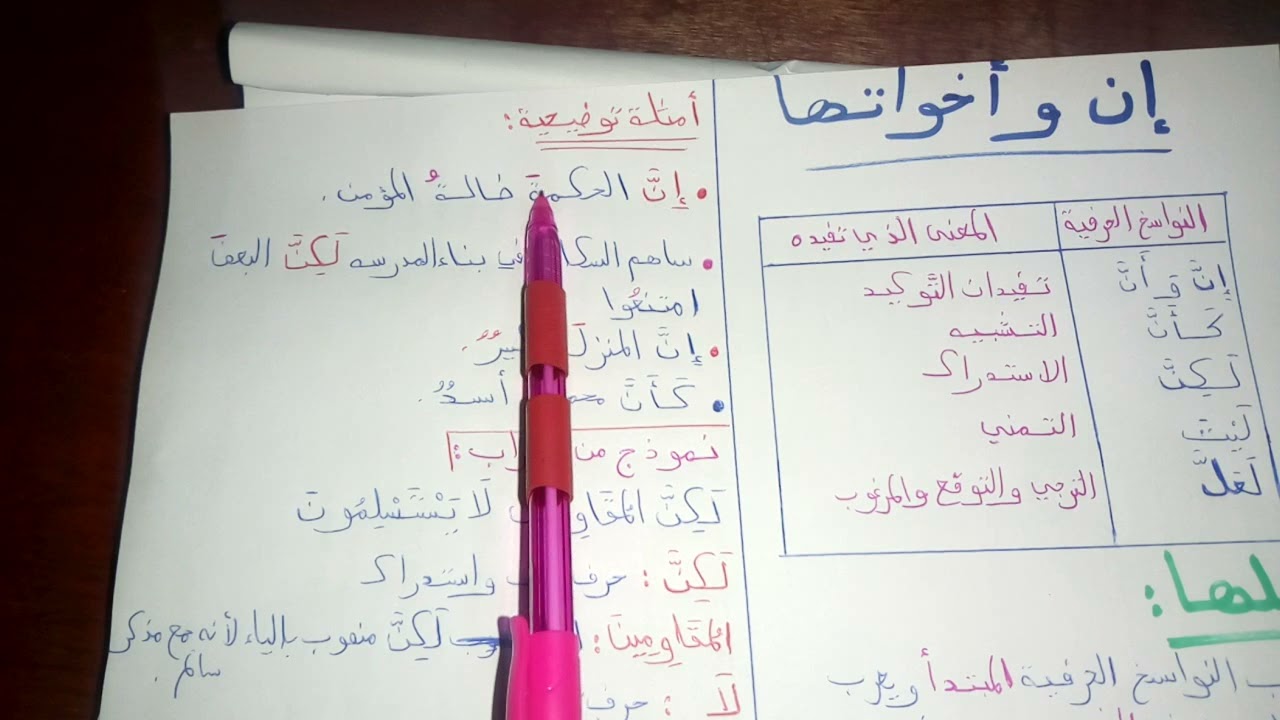 إن و أخواتها
النواسخ الحرفية المعنى الذي تفيده
إِنَّ وَ أَنَّ تفيدان التَّوكيد
كَأَنَّ التشبيه
لَكِنَّ الاستدراك
لَيْتَ التمني
لَعَلَّ الترجي والتوقع والمرغوب
لها:
النواسخ الحرفية المبتدأ ويعرب
أمثلة توضيحية:
• إِنَّ الحكمةَ ضالةُ المؤمن.
• ساهم السكا في بناء المدرسه لَكِنَّ البعضَ
امتنعُوا
• إنَّ المنزلَ يرٌ.
• كَأَنَّ محم أسدٌ.
نموذج من راب:
لَكِنَّ المُقَاوِ لَا يَسْتَسْلِمُونَ
لَكِنَّ: حرف واستدراك
المُقَاوِمِينَ: لَكِنَّ منصوب بالياء لأنه جمع مذكر
سالم.
لَا: حرف